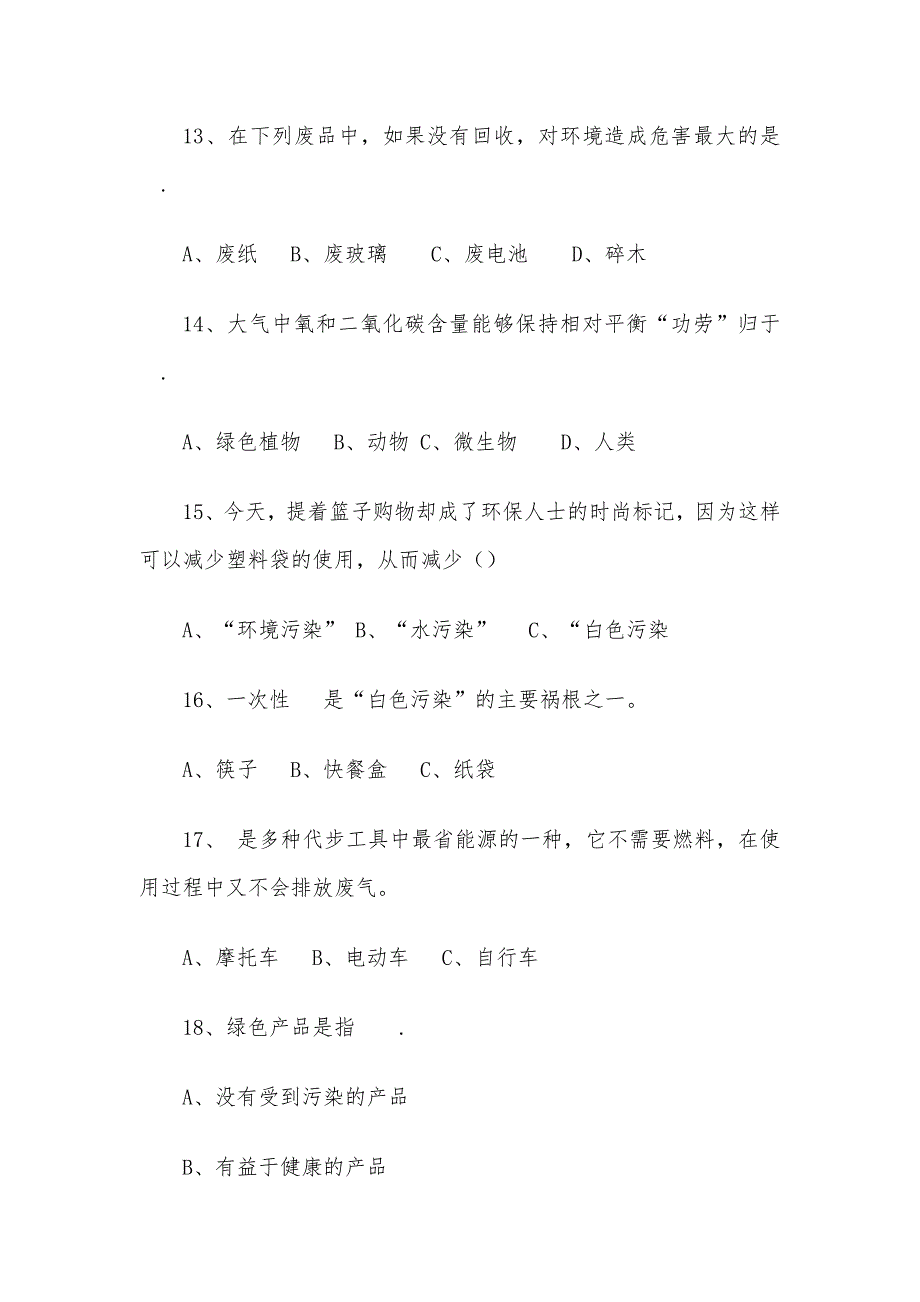 13、在下列废品中，如果没有回收，对环境造成危害最大的是
.
A、废纸 B、废玻璃 C、废电池 D、碎木
14、大气中氧和二氧化碳含量能够保持相对平衡“功劳”归于
.
A、绿色植物 B、动物 C、微生物 D、人类
15、今天，提着篮子购物却成了环保人士的时尚标记，因为这样
可以减少塑料袋的使用，从而减少（）
A、“环境污染” B、“水污染” C、“白色污染
16、一次性 是“白色污染”的主要祸根之一。
A、筷子 B、快餐盒 C、纸袋
17、 是多种代步工具中最省能源的一种，它不需要燃料，在使
用过程中又不会排放废气。
A、摩托车 B、电动车 C、自行车
18、绿色产品是指 .
A、没有受到污染的产品
B、有益于健康的产品